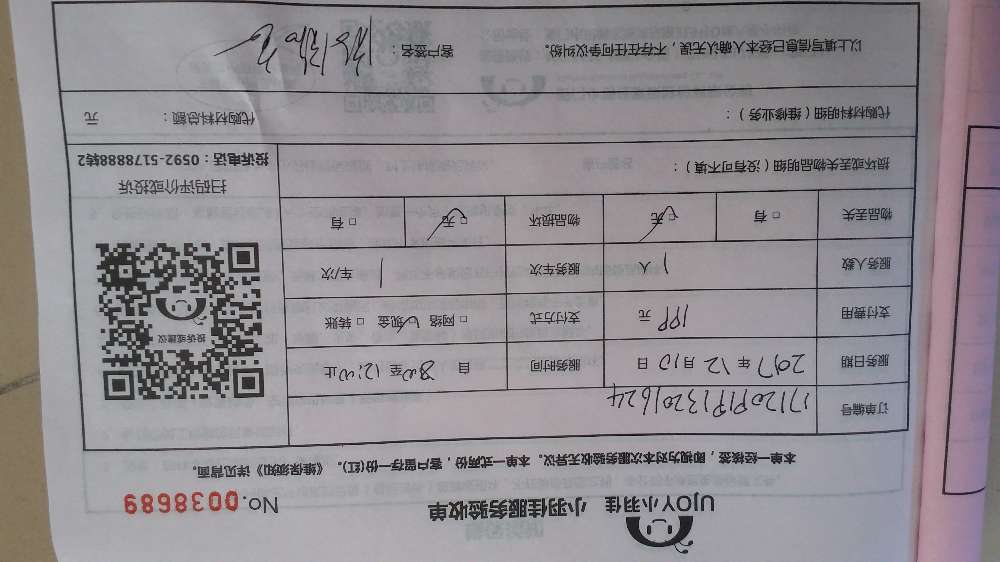 UJOY小羽佳 小羽佳服务验收单
No. 0038689
本单一经核签，即视为对本次服务验收无异议。本单一式两份，客户留存一份(红)。《维保须知》详见背面。
订单编号
服务日期 2017年12月10日 服务时间 自8:00至12:00止
支付费用 199元 支付方式 □网络 □现金 □转账
服务人数 1人 服务车次 1车/次
物品丢失 □有 □无 物品损坏 □无 □有
投诉或建议
损坏或丢失物品明细（没有可不填）：
扫码评价或投诉
投诉电话：0592-5178888转2
代购材料明细（维修业务）： 代购材料总额： 元
以上填写信息已经本人确认无误，不存在任何争议纠纷。 客户签名：